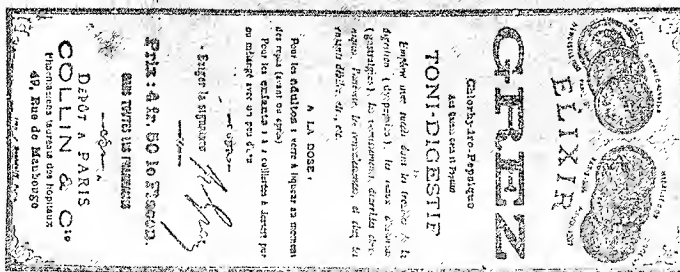 ELIXIR
GREZ
Chlorhydro-Pepsique
TONI-DIGESTIF
Employé avec succès dans les troubles de la
digestion (dyspepsies), les maux d'estomac
(gastralgies), les vomissements, diarrhées chro-
niques, l'anémie, les convalescences, et chez les
enfants débiles, etc., etc.
A LA DOSE :
Pour les adultes : 1 verre à liqueur au moment
des repas (avant ou après)
Pour les enfants : 1 à 2 cuillerées à dessert pur
ou mélangé avec un peu d'eau
Exiger la signature
Prix : 4 fr. 50 le FLACON.
DÉPÔT A PARIS
COLLIN & Cie
Pharmaciens lauréats des hôpitaux
49, Rue de Maubeuge